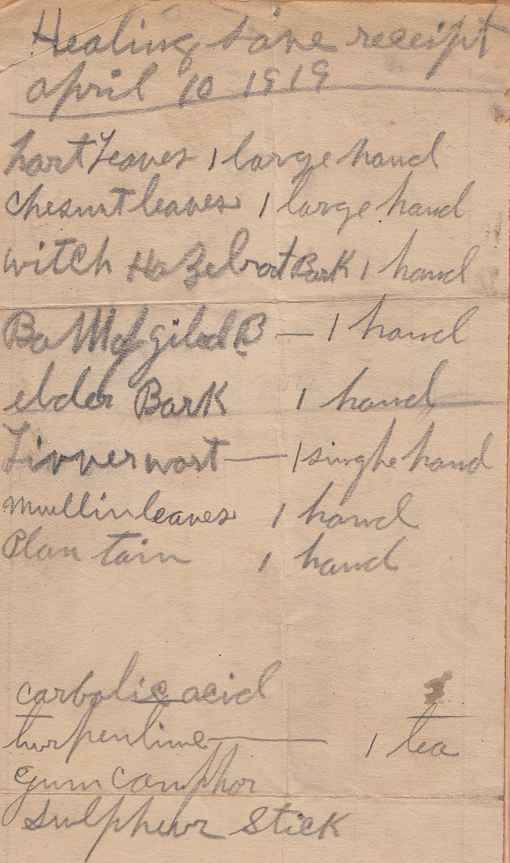 Healing salve receipt
april 10 1919
hart leaves 1 large hand
chesnut leaves 1 large hand
witch Hazelroot Bark 1 hand
Balm of gilead B — 1 hand
elder Bark 1 hand
Livverwort — 1 singhe hand
mullin leaves 1 hand
Plan tain 1 hand
carbolic acid
turpentine — 1 tea
gum camphor
Sulpheur Stick